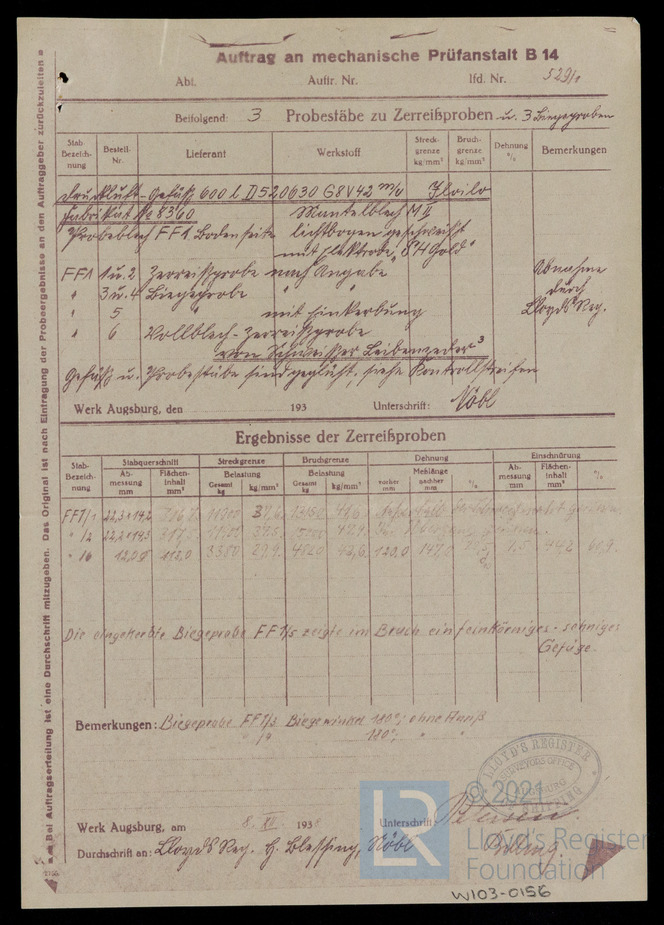 Auftrag an mechanische Prüfanstalt B 14
Abt. Auftr. Nr. lfd. Nr. 529/1
Beifolgend: 3 Probestäbe zu Zerreißproben u. 3 Biegeproben
Stab-Bezeichnung Bestell-Nr. Lieferant Werkstoff Streckgrenze kg/mm² Bruchgrenze kg/mm² Dehnung % Bemerkungen
Druckluft-Gefäß 600 l D520630 G8V42 m/v Iloilo
Fabrikat No 8360 Mantelblech M II
Probeblech FF1 Bodenseite lichtbogengeschweißt
mit Elektrode "SH Gold"
FF1 1 u. 2 Zerreissprobe nach Angabe
" 3 u. 4 Biegeprobe " "
" 5 " mit Einkerbung
" 6 Vollblech-Zerreissprobe
Abnahme
durch
Lloyds Reg.
von Schweisser Leibenzeder
Gefäß u. Probestäbe sind geglüht, siehe Kontrollstreifen
Werk Augsburg, den 193 Unterschrift: Nöbl
Ergebnisse der Zerreißproben
Stab-Bezeichnung Stabquerschnitt Streckgrenze Bruchgrenze Dehnung Einschnürung
Abmessung mm Flächeninhalt mm² Belastung Gesamt kg kg/mm² Belastung Gesamt kg kg/mm² Meßlänge vorher mm nachher mm % Abmessung mm Flächeninhalt mm² %
FF1/1 22,3×14,2
" /2 22,2×14,3
" /6 12,0 ⌀ 113,0 3380 29,9 4820 42,6 120,0 147,0 7,5 44,2 60,9
Die eingekerbte Biegeprobe FF1/5 zeigte im Bruch ein feinkörniges-sehniges
Gefüge.
Bemerkungen: Biegeprobe FF1/3 Biegewinkel 180°; ohne Anriß
180°; " "
LLOYD'S REGISTER
SURVEYORS OFFICE
AUGSBURG
SHIPPING
Werk Augsburg, am 8. XII 1938 Unterschrift:
Durchschrift an: Lloyds Reg. H. Blessing, Nöbl
Bei Auftragserteilung ist eine Durchschrift mitzugeben. Das Original ist nach Eintragung der Probeergebnisse an den Auftraggeber zurückzuleiten
© 2021
LR
Lloyd's Register
Foundation
W103-0156